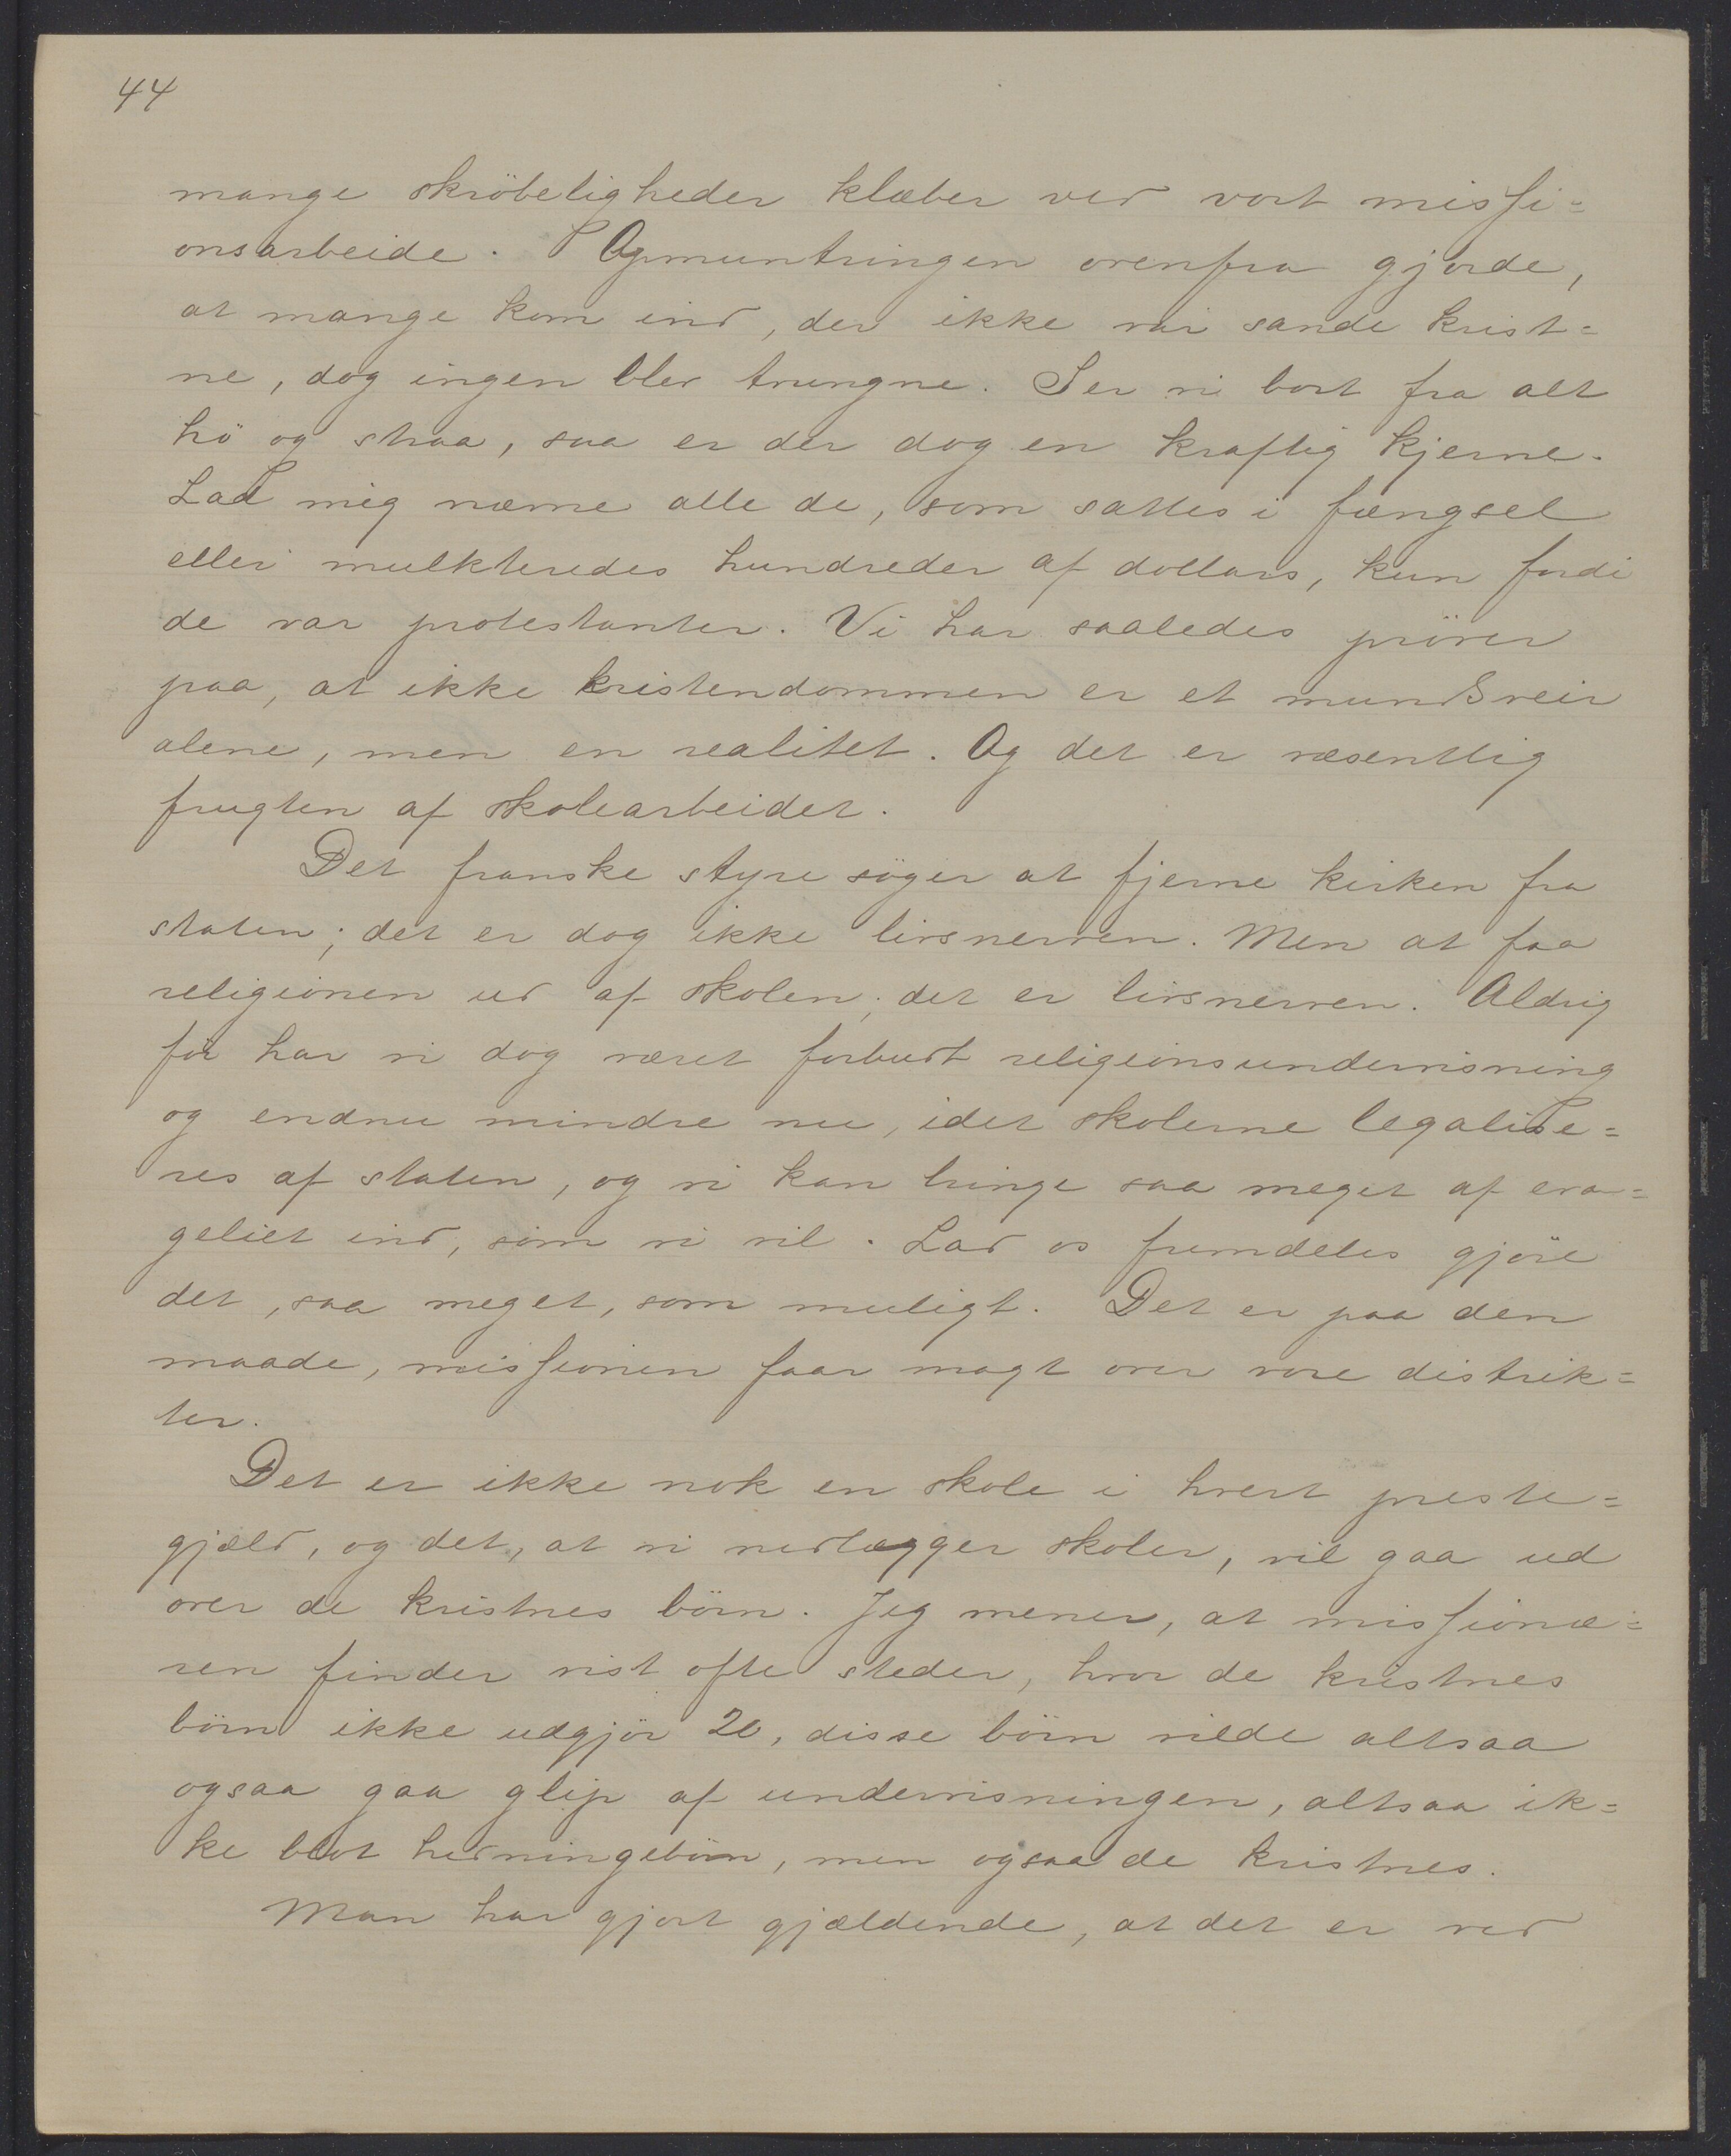 44
mange skröbeligheder klæber ved vort missi=
onsarbeide. Opmuntringen ovenfra gjorde,
at mange kom ind, der ikke var sande krist=
ne, dog ingen blev tvungne. Ser vi bort fra alt
hö og straa, saa er der dog en kraftig kjerne.
Lad mig nævne alle de, som sattes i fængsel
eller mulkteredes hundreder af dollars, kun fordi
de var protestanter. Vi har saaledes pröver
paa, at ikke kristendommen er et mundsveir
alene, men en realitet. Og det er væsentlig
frugten af skolearbeidet.
Det franske styre söger at fjerne kirken fra
staten; det er dog ikke livsnerven. Men at faa
religionen ud af skolen, det er livsnerven. Aldrig
för har vi dog været forbudt religionsundervisning
og endnu mindre nu, idet skolerne legalise=
res af staten, og vi kan bringe saa meget af eva=
geliet ind, som vi vil. Lad os fremdeles gjöre
det, saa meget, som muligt. Det er paa den
maade, missionen faar magt over vore distrik=
ter.
Det er ikke nok en skole i hvert preste=
gjæld, og det, at vi nedlægger skoler, vil gaa ud
over de kristnes börn. Jeg mener, at missionæ=
ren finder vist ofte steder, hvor de kristnes
börn ikke udgjör 20, disse börn vilde altsaa
ogsaa gaa glip af undervisningen, altsaa ik=
ke blot hedningebörn, men ogsaa de kristnes.
Man har gjort gjældende, at det er ved